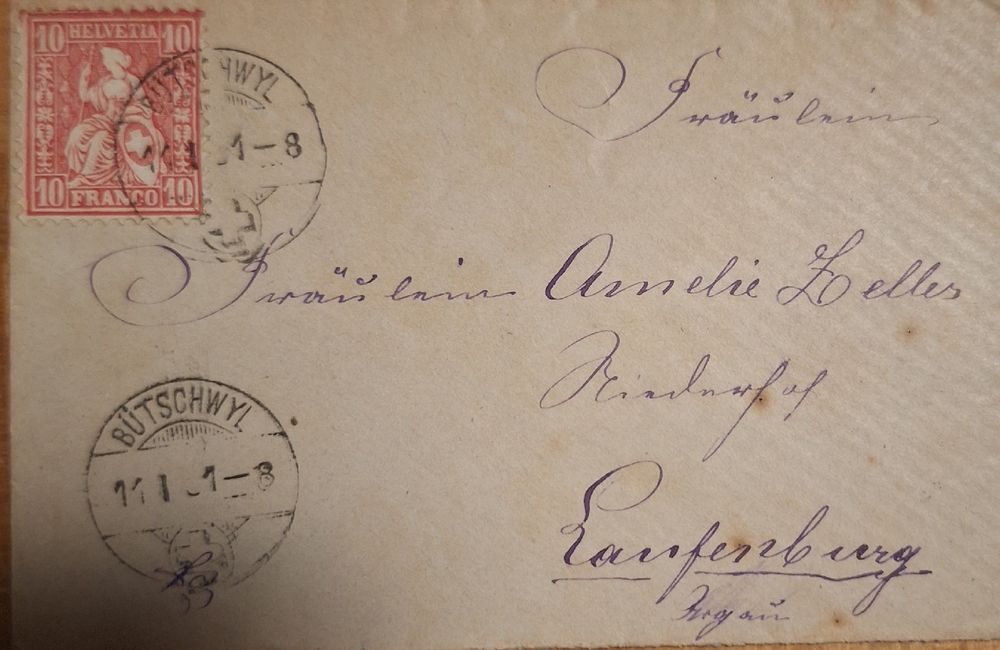 10 HELVETIA 10
10 FRANCO 10
BÜTSCHWYL
11 I 81-8
Fräulein
Fräulein Amelie Zeller
Niederhof
Laufenburg
Argau
BÜTSCHWYL
11 I 81-8